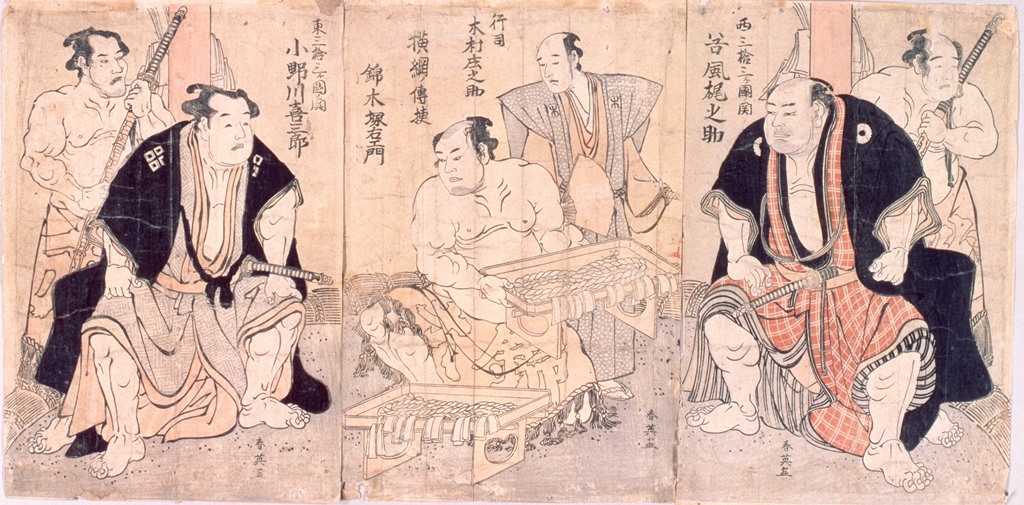 西三拾三ヶ國関
谷風梶之助
春英画
行司
木村庄之助
横綱傳授
錦木塚右エ門
春英画
東三拾三ヶ國関
小野川喜三郎
春英画